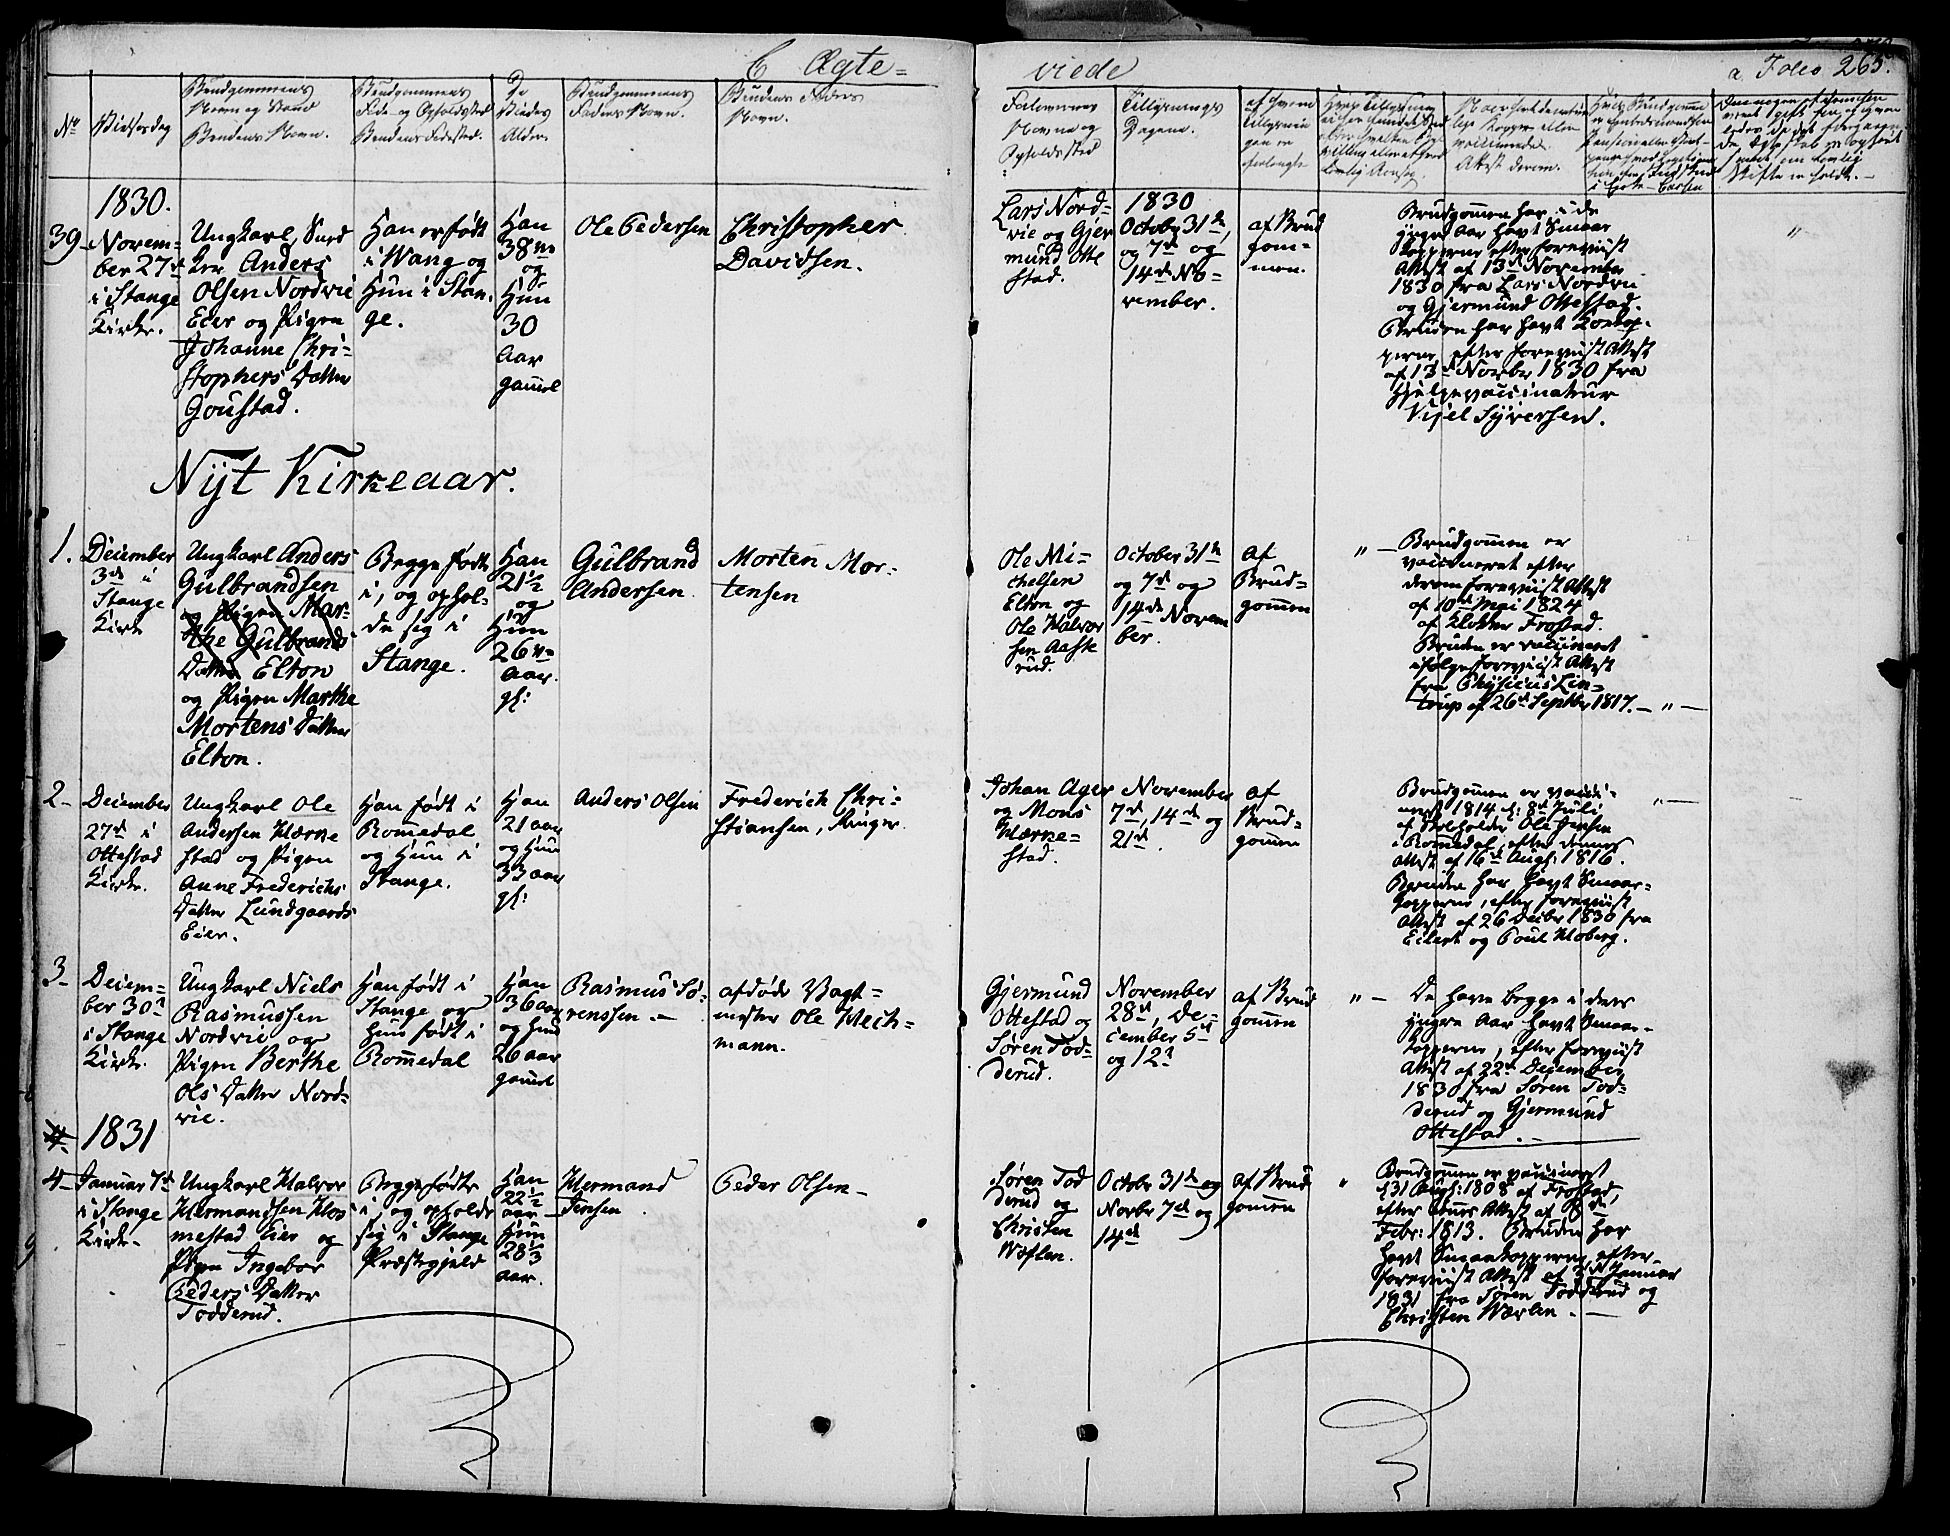 C Ægte=
viede
a Folio 265.
No
Vielsesdag
Brudgommens
Navn og Stand
Brudens Navn.
Brudgommens
Føde- og Opholdssted
Brudens Fødested.
De
Viedes
Alder.
Brudgommens
Faders Navn.
Brudens Faders
Navn.
Forlovernes
Navne og
Opholdssted
Tillysnings
Dagene.
af hvem
Tillysnin
gen er
forlangt
1830.
39-
Novem=
ber 27de
i Stange
Kirke.
Ungkarl,
Anders
Olsen Nordvie
Eier og Pigen
Johanne Chri=
stophers Datter
Goustad.
Han er født
i Wang og
Hun i Stan,
ge.
Han
38 
og
Hun
30
Aar
gamel
Ole Pedersen
Christopher
Davidsen.
Lars Nord=
vie og Gjer
mund Otte
stad.
1830
October 31te,
og 7de og
14de No=
vember.
af Brud
gom=
men.
Brudgommen har i de
yngre Aar havt Smaae
kopperne efter foreviist
Attest af 13de November
1830 fra Lars Nordvie
og Gjermund Ottestad.
Bruden har havt Koekop,
perne, efter foreviist Attest
af 13de Novbr 1830 fra
Hjelpevaccinateur
Sÿversen.
"
Nÿt Kirkeaar.
1.
December
3de "
Stange
Kirke
Ungkarl Anders
Gulbrandsen
og Pigen Mar=
the Gulbrands
Datter Elton
og Pigen Marthe
Mortens Datter
Elton.
Begge fødte
i, og ophol=
de sig i
Stange.
Han
21½
og
Hun
26
Aar.
gl:
Gulbrand
Andersen
Morten Mor=
tensen
Ole Mi=
chelsen
Elton og
Ole Halvor
sen Aaske
rud.
October 31te
og 7de og
14de Novem
ber.
af
Brud=
gommen
" —
Brudgommen er
vaccineret efter
derom foreviist Attest
af 10de Mai 1824
af Klokker Frostad.
Bruden er vaccineret
ifølge foreviist Attest
fra Physicus Lin=
trup af 26de Septbr 1817. — " —
2-
December
27de i
Ottestad
Kirke.
Ungkarl Ole
Andersen Hærne
stad og Pigen
Anne Frederichs
Datter Lundgaards
Eier.
Han født i
Romedal
og Hun i
Stange.
Han
21 aar
og Hun
33 aar
gl:
Anders Olsen
Frederich Chri=
stiansen, Ringer.
Johan Ager
og Mons
Hærne=
stad.
November
7de, 14de og
21de.
af
Brud=
gommen
Brudgommen er vacci=
neret 1814 d: 8de Juli
af Skolholder Ole Jensen
i Rommedal, efter dennes
Attest af 16de Augs: 1816.
Bruden har havt Smaae=
kopperne, efter foreviist
Attest af 26 Decbr 1830 fra
Eilert og Poul Hoberg.
" —
3-
Decem=
ber 30te
i Stange
Kirke.
Ungkarl Niels
Rasmussen
Nordvie og
Pigen Berthe
Ols Datter Nord=
vie.
Han født i
Stange og
hun født i
Rommedal
Han
36 aar
og hun
26 aar
gamel
Rasmus Sø=
renssen —
afdøde Vagt=
mester Ole Wech=
mann.
Gjermund
Ottestad og
Søren Tod=
derud.
November
28de, De=
cember 5te
og 12te
af Brud
gommen
" —
De have begge i deres
yngre Aar havt Smaae=
kopperne, efter foreviist
Attest af 22de December
1830 fra Søren Tod=
derud og Gjermund
Ottestad. —
1831
4-
Januar 7de
i Stange
Kirke.
Ungkarl Halvor
Hermandsen Hos
mestad Eier og
Pigen Ingebor
Peders Datter
Todderud.
Begge fødte
i, og opholde
sig i Stange
Præstegjeld
Han
22½
aar —
Hun
28⅓
aar.
Hermand
Jensen
Peder Olsen —
Søren Tod
derud og
Christen
Wæhlen.
Octobr 31te og
Novbr 7de og
14de
af Brud
gommen
"
Brudgommen er vaccineret
d 31 Augs: 1808 af Frostad,
efter Attest af 8de
Febr: 1813. Bruden har
havt Smaakopperne, efter
foreviist Attest af Januar
1831 fra Søren Todderud og
Christen Wæhlen. —